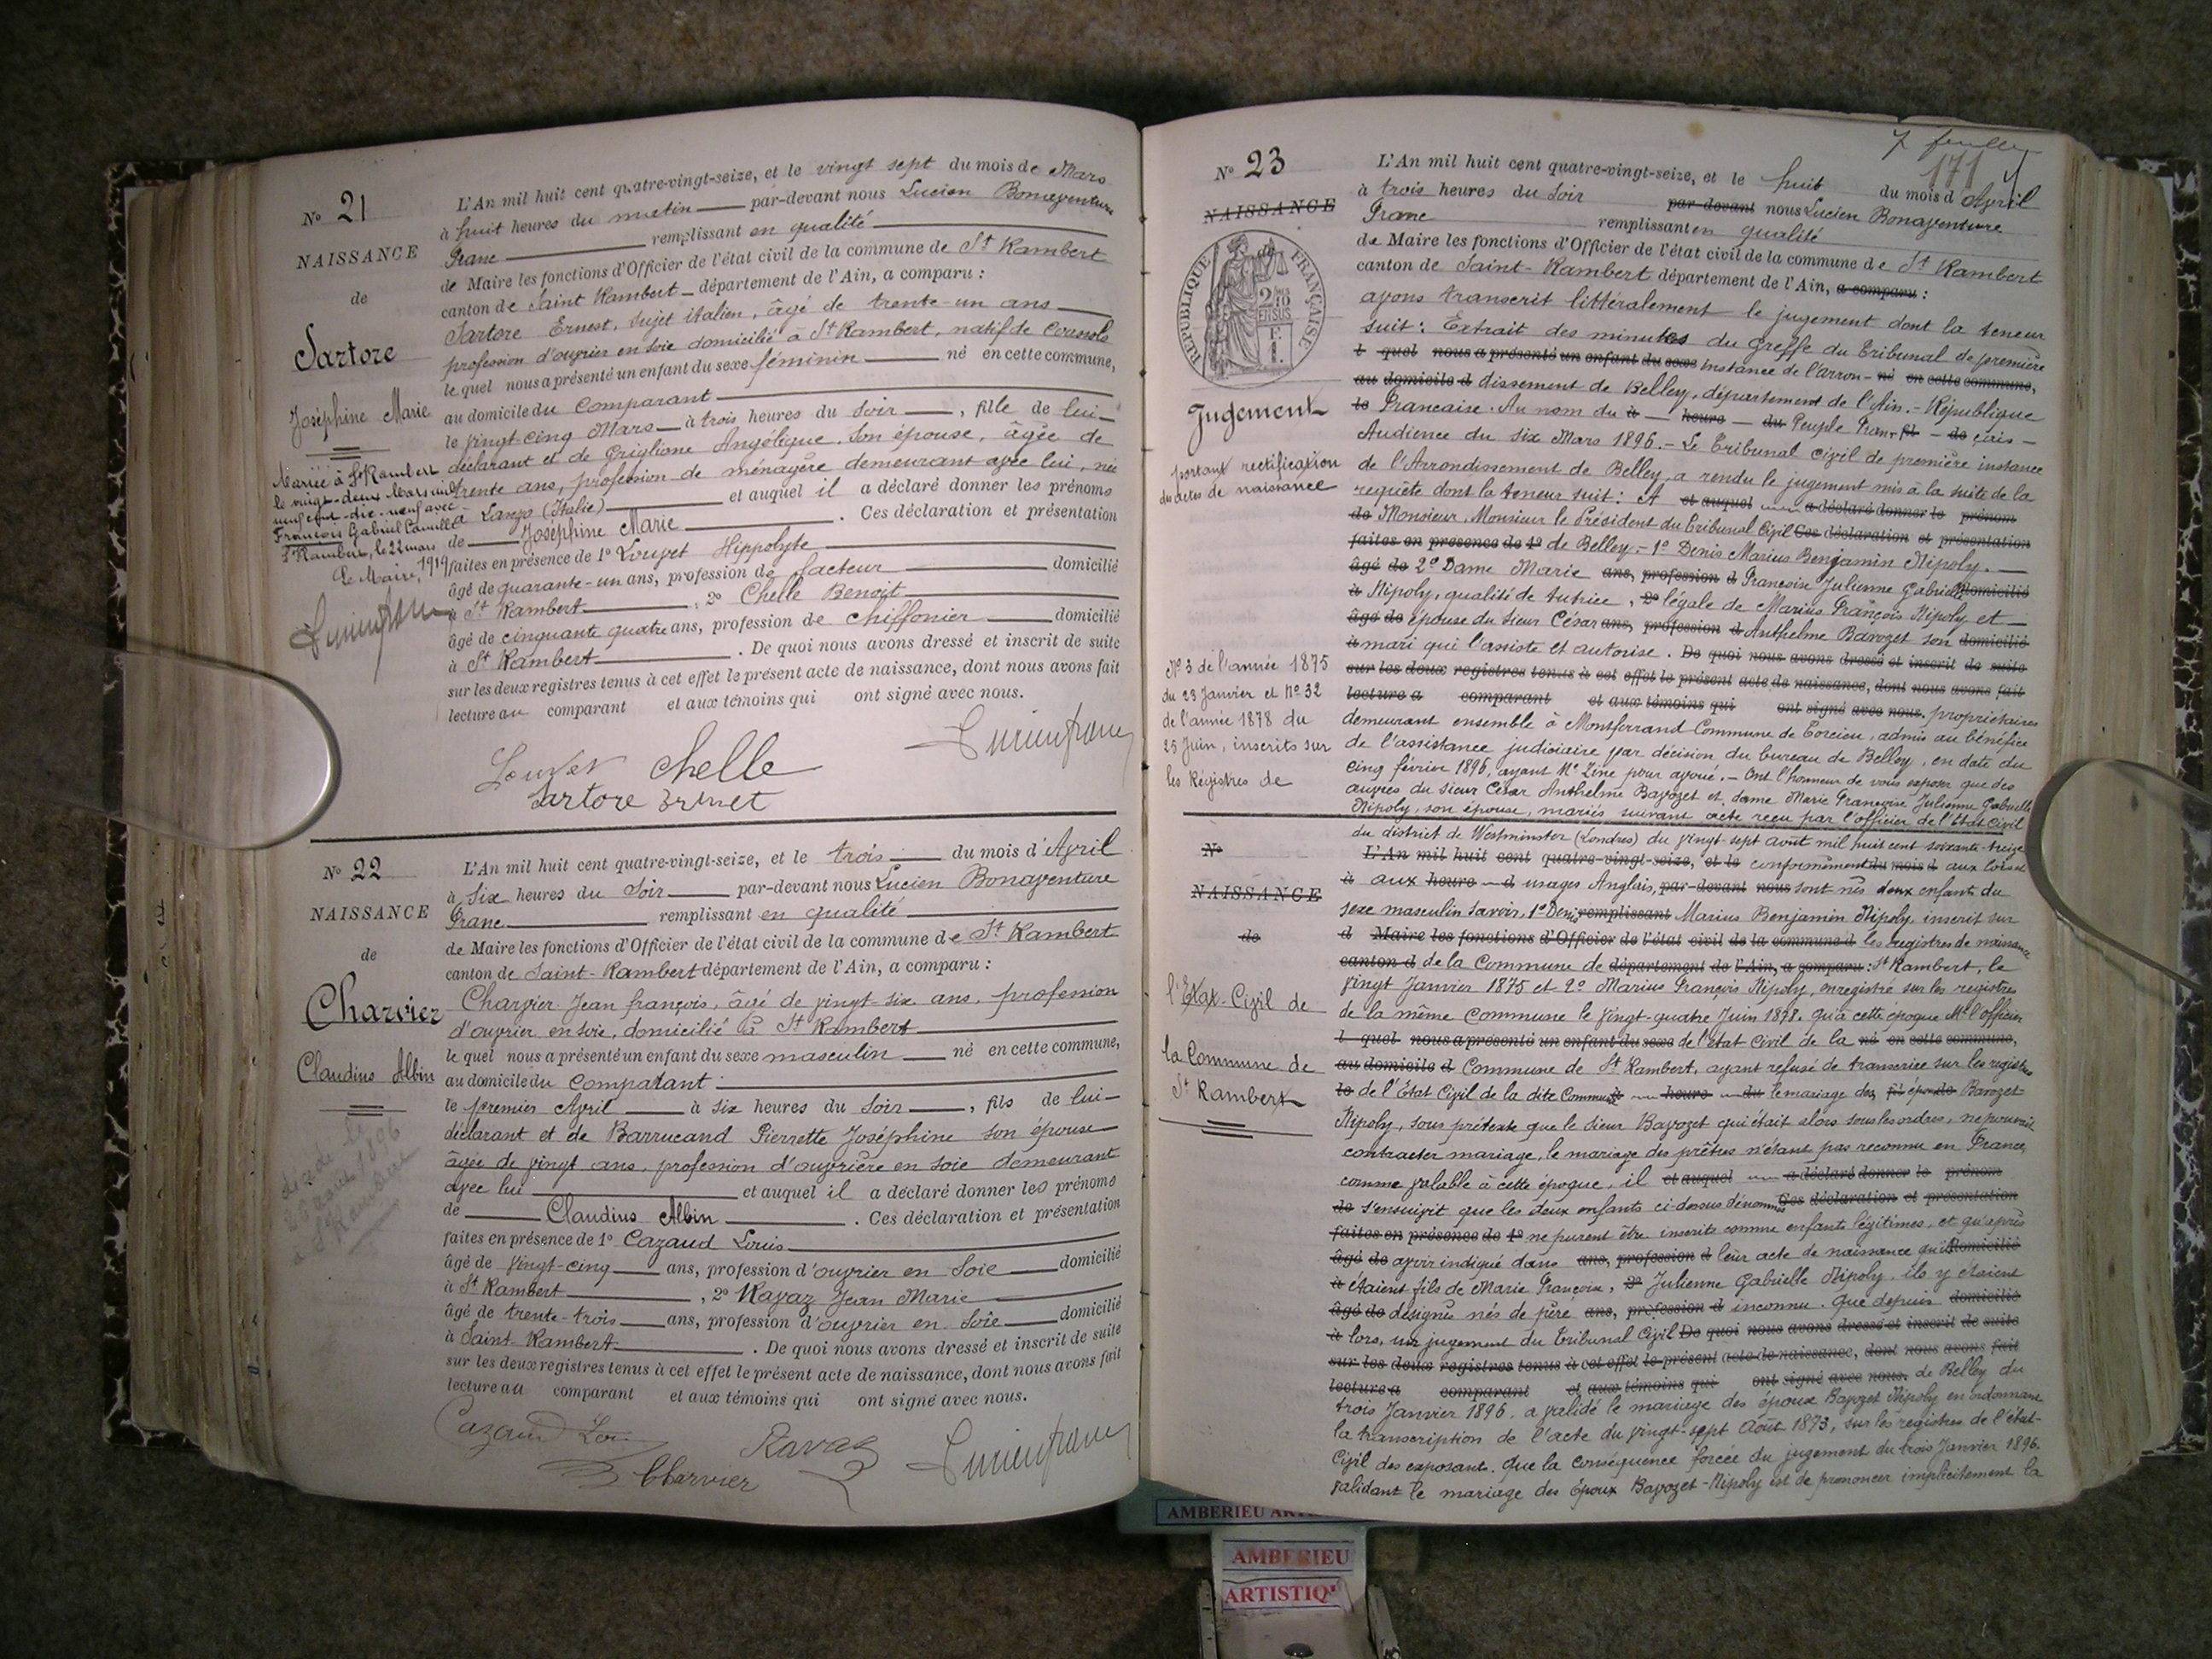 N° 21
NAISSANCE
de
Sartore
Joséphine Marie
Mariée à St Rambert
le vingt-deux Mars mil
neuf cent-dix-neuf avec
François Gabriel Camille
St Rambert, le 22 mars
1919
Le Maire,
L'An mil huit cent quatre-vingt-seize, et le vingt sept du mois de Mars
à huit heures du matin par-devant nous Lucien Bonaventure
Franc remplissant en qualité
de Maire les fonctions d'Officier de l'état civil de la commune de St Rambert
canton de Saint Rambert département de l'Ain, a comparu :
Sartore Ernest, sujet italien, âgé de trente-un ans
profession d'ouvrier en soie domicilié à St Rambert, natif de
le quel nous a présenté un enfant du sexe féminin né en cette commune,
au domicile du comparant
le vingt-cinq Mars à trois heures du soir , fille de lui
déclarant et de Griglione Angélique, son épouse, âgée de
trente ans, profession de ménagère demeurant avec lui, née
à (Italie) et auquel il a déclaré donner les prénoms
de Joséphine Marie . Ces déclaration et présentation
faites en présence de 1° Louvet Hippolyte
âgé de quarante-un ans, profession de facteur domicilié
à St Rambert , 2° Chelle Benoit
âgé de cinquante quatre ans, profession de chiffonier domicilié
à St Rambert . De quoi nous avons dressé et inscrit de suite
sur les deux registres tenus à cet effet le présent acte de naissance, dont nous avons fait
lecture au comparant et aux témoins qui ont signé avec nous.
Louvet Chelle
Sartore Ernet
N° 22
NAISSANCE
de
Charvier
Claudius Albin
L'An mil huit cent quatre-vingt-seize, et le trois du mois d'Avril
à six heures du soir par-devant nous Lucien Bonaventure
Franc remplissant en qualité
de Maire les fonctions d'Officier de l'état civil de la commune de St Rambert
canton de Saint-Rambert département de l'Ain, a comparu :
Charvier Jean françois, âgé de vingt-six ans, profession
d'ouvrier en soie, domicilié à St Rambert
le quel nous a présenté un enfant du sexe masculin né en cette commune,
au domicile du comparant
le premier Avril à six heures du soir , fils de lui
déclarant et de Barrucand Pierrette Joséphine son épouse
âgée de vingt ans, profession d'ouvrière en soie demeurant
avec lui et auquel il a déclaré donner les prénoms
de Claudius Albin . Ces déclaration et présentation
faites en présence de 1° Cazaud Louis
âgé de vingt-cinq ans, profession d'ouvrier en soie domicilié
à St Rambert , 2° Ravaz Jean Marie
âgé de trente-trois ans, profession d'ouvrier en soie domicilié
à Saint-Rambert . De quoi nous avons dressé et inscrit de suite
sur les deux registres tenus à cet effet le présent acte de naissance, dont nous avons fait
lecture au comparant et aux témoins qui ont signé avec nous.
Cazaud Ravaz
Charvier
171
N° 23
NAISSANCE
de
RÉPUBLIQUE FRANÇAISE
2/10 EN SUS
Jugement
portant rectification
des actes de naissance
N° 3 de l'année 1875
du 23 Janvier et N° 32
de l'année 1878 du
25 Juin, inscrits sur
les Registres de
L'An mil huit cent quatre-vingt-seize, et le huit du mois d'Avril
à trois heures du soir par-devant nous Lucien Bonaventure
Franc remplissant en qualité
de Maire les fonctions d'Officier de l'état civil de la commune de St Rambert
canton de Saint-Rambert département de l'Ain, a comparu :
avons transcrit littéralement le jugement dont la teneur
suit : Extrait des minutes du Greffe du Tribunal de première
l quel nous a présenté un enfant du sexe instance de l'arron- né en cette commune,
au domicile d dissement de Belley, département de l'Ain. - République
le Française. Au nom du à heure du Peuple Fran- fil de çais -
Audience du six Mars 1896. - Le Tribunal civil de première instance
de l'Arrondissement de Belley, a rendu le jugement mis à la suite de la
requête dont la teneur suit : A et auquel a déclaré donner le prénom
de Monsieur, Monsieur le Président du Tribunal Civil Ces déclaration et présentation
faites en présence de 1° de Belley. - 1° Denis Marius Benjamin Nipoly. -
âgé de 2° Dame Marie ans, profession d Françoise Julienne Gabrielle domicilié
à Nipoly, qualité de tutrice, 2° légale de Marius François Nipoly et
âgé de épouse du Sieur César ans, profession d Anthelme Bavozet son domicilié
à mari qui l'assiste et autorise. De quoi nous avons dressé et inscrit de suite
sur les deux registres tenus à cet effet le présent acte de naissance, dont nous avons fait
lecture a comparant et aux témoins qui ont signé avec nous. propriétaires
demeurant ensemble à Montferrand Commune de Torcieu, admis au bénéfice
de l'assistance judiciaire par décision du bureau de Belley, en date du
cinq février 1896, ayant Me Zine pour avoué. - Ont l'honneur de vous exposer que des
œuvres du sieur César Anthelme Bavozet et dame Marie Françoise Julienne Gabrielle
Nipoly, son épouse, mariés suivant acte reçu par l'officier de l'Etat Civil
du district de Westminster (Londres) du vingt-sept août mil huit cent soixante-treize
N°
NAISSANCE
de
l'Etat-Civil de
la Commune de
St Rambert
L'An mil huit cent quatre-vingt-seize, et le conformément du mois d aux lois et
à aux heure d usages Anglais, par-devant nous sont nés deux enfants du
sexe masculin savoir, 1° Denis remplissant Marius Benjamin Nipoly, inscrit sur
d Maire les fonctions d'Officier de l'état civil de la commune d les registres de naissance
canton d de la Commune de département de l'Ain, a comparu : St Rambert, le
vingt Janvier 1875 et 2° Marius François Nipoly, enregistré sur les registres
de la même Commune le vingt-quatre Juin 1878. Qu'à cette époque Mr l'officier
l quel nous a présenté un enfant du sexe de l'état Civil de la né en cette commune,
au domicile d Commune de St Rambert, ayant refusé de transcrire sur les registres
le de l'État Civil de la dite Commune à heure du le mariage des fil époux de Bavozet
Nipoly, sous prétexte que le sieur Bavozet qui était alors sous les ordres, ne pouvait
contracter mariage, le mariage des prêtres n'étant pas reconnu en France,
comme valable à cette époque, il et auquel a déclaré donner le prénom
de s'ensuivit que les deux enfants ci-dessus dénommés Ces déclaration et présentation
faites en présence de 1° ne purent être inscrits comme enfants légitimes, et qu'après
âgé de avoir indiqué dans ans, profession d leur acte de naissance qu'ils domicilié
à étaient fils de Marie Françoise, 2° Julienne Gabrielle Nipoly, ils y étaient
âgé de désignés nés de père ans, profession d inconnu. Que depuis domicilié
à lors, un jugement du Tribunal Civil De quoi nous avons dressé et inscrit de suite
sur les deux registres tenus à cet effet le présent acte de naissance, dont nous avons fait
lecture a comparant et aux témoins qui ont signé avec nous. de Belley du
trois Janvier 1896, a validé le mariage des époux Bavozet Nipoly en ordonnant
la transcription de l'acte du vingt-sept Août 1873, sur les registres de l'état-
Civil des exposant. Que la conséquence forcée du jugement du trois Janvier 1896
validant le mariage des Époux Bavozet-Nipoly est de prononcer implicitement la
AMBERIEU
AMBERIEU
ARTISTIQ